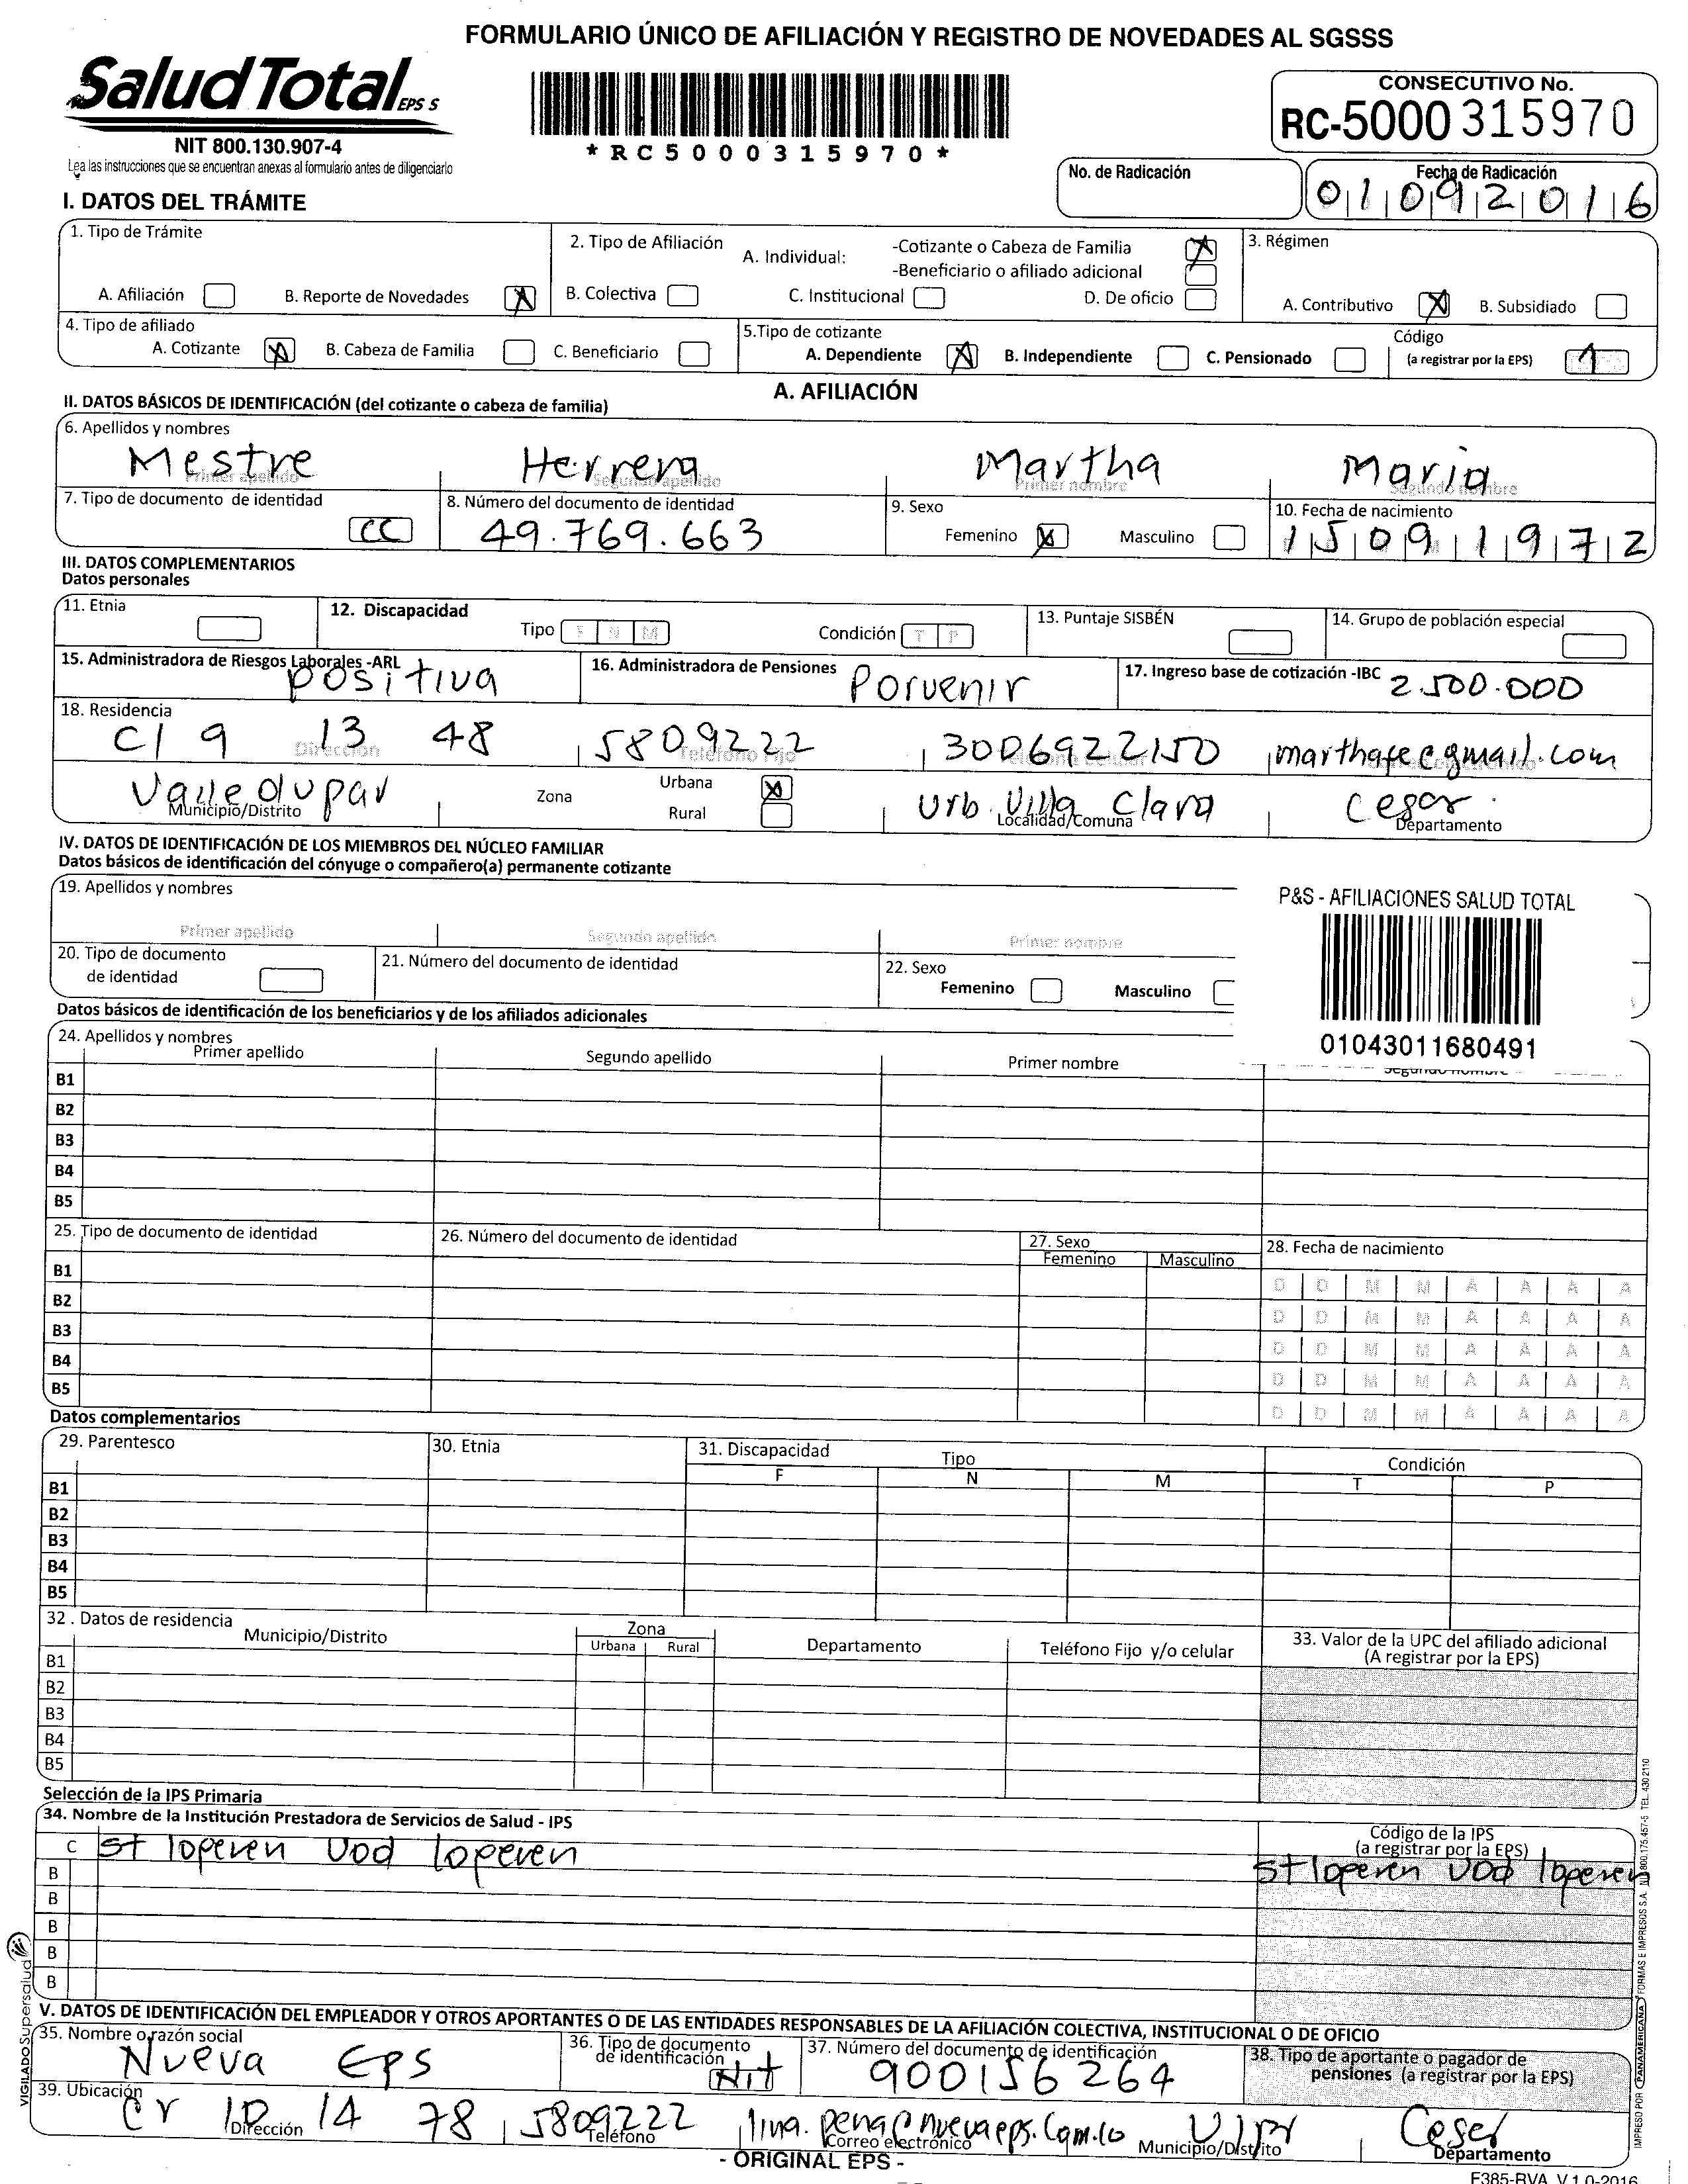 FORMULARIO ÚNICO DE AFILIACIÓN Y REGISTRO DE NOVEDADES AL SGSSS
SaludTotal EPS S
NIT 800.130.907-4
Lea las instrucciones que se encuentran anexas al formulario antes de diligenciarlo
*RC5000315970*
CONSECUTIVO No.
RC-5000 315970
No. de Radicación
Fecha de Radicación
01092016
I. DATOS DEL TRÁMITE
1. Tipo de Trámite
A. Afiliación B. Reporte de Novedades X
2. Tipo de Afiliación A. Individual: -Cotizante o Cabeza de Familia X
-Beneficiario o afiliado adicional
B. Colectiva C. Institucional D. De oficio
3. Régimen
A. Contributivo X B. Subsidiado
4. Tipo de afiliado
A. Cotizante X B. Cabeza de Familia C. Beneficiario
5.Tipo de cotizante
A. Dependiente X B. Independiente C. Pensionado
Código
(a registrar por la EPS) 1
A. AFILIACIÓN
II. DATOS BÁSICOS DE IDENTIFICACIÓN (del cotizante o cabeza de familia)
6. Apellidos y nombres
Mestre Herrera Martha Maria
Primer apellido Segundo apellido Primer nombre Segundo nombre
7. Tipo de documento de identidad
CC
8. Número del documento de identidad
49.769.663
9. Sexo
Femenino X Masculino
10. Fecha de nacimiento
15091972
III. DATOS COMPLEMENTARIOS
Datos personales
11. Etnia
12. Discapacidad
Tipo F N M Condición T P
13. Puntaje SISBÉN
14. Grupo de población especial
15. Administradora de Riesgos Laborales -ARL positiva
16. Administradora de Pensiones Porvenir
17. Ingreso base de cotización -IBC 2.500.000
18. Residencia
Cl 9 13 48 5809222 3006922150
Dirección Teléfono Fijo
Valledupar Zona Urbana X Rural Urb. Villa Clara Cesar
Municipio/Distrito Localidad/Comuna Departamento
IV. DATOS DE IDENTIFICACIÓN DE LOS MIEMBROS DEL NÚCLEO FAMILIAR
Datos básicos de identificación del cónyuge o compañero(a) permanente cotizante
19. Apellidos y nombres
Primer apellido Segundo apellido Primer nombre
P&S - AFILIACIONES SALUD TOTAL
01043011680491
20. Tipo de documento
de identidad
21. Número del documento de identidad
22. Sexo
Femenino Masculino
Datos básicos de identificación de los beneficiarios y de los afiliados adicionales
24. Apellidos y nombres
Primer apellido Segundo apellido Primer nombre Segundo nombre
B1
B2
B3
B4
B5
25. Tipo de documento de identidad 26. Número del documento de identidad 27. Sexo 28. Fecha de nacimiento
Femenino Masculino
B1 D D M M A A A A
B2 D D M M A A A A
B3 D D M M A A A A
B4 D D M M A A A A
B5 D D M M A A A A
Datos complementarios
29. Parentesco 30. Etnia 31. Discapacidad Tipo Condición
F N M T P
B1
B2
B3
B4
B5
32 . Datos de residencia
Municipio/Distrito Zona Departamento Teléfono Fijo y/o celular
Urbana Rural
33. Valor de la UPC del afiliado adicional
(A registrar por la EPS)
B1
B2
B3
B4
B5
Selección de la IPS Primaria
34. Nombre de la Institución Prestadora de Servicios de Salud - IPS
Código de la IPS
(a registrar por la EPS)
C St loperen Uod loperen St loperen Uod loperen
B
B
B
B
B
V. DATOS DE IDENTIFICACIÓN DEL EMPLEADOR Y OTROS APORTANTES O DE LAS ENTIDADES RESPONSABLES DE LA AFILIACIÓN COLECTIVA, INSTITUCIONAL O DE OFICIO
35. Nombre o razón social
Nueva Eps
36. Tipo de documento
de identificación
Nit
37. Número del documento de identificación
900156264
38. Tipo de aportante o pagador de
pensiones (a registrar por la EPS)
39. Ubicación
Cr 12 14 78 5809222 lina.pena@nuevaeps.com.co Cesar
Dirección Teléfono Correo electrónico Municipio/Distrito Departamento
- ORIGINAL EPS -
F385-RVA V.1.0-2016
VIGILADO Supersalud
IMPRESO POR PANAMERICANA FORMAS E IMPRESOS S.A. NIT.800.175.457-5 TEL. 430 2110